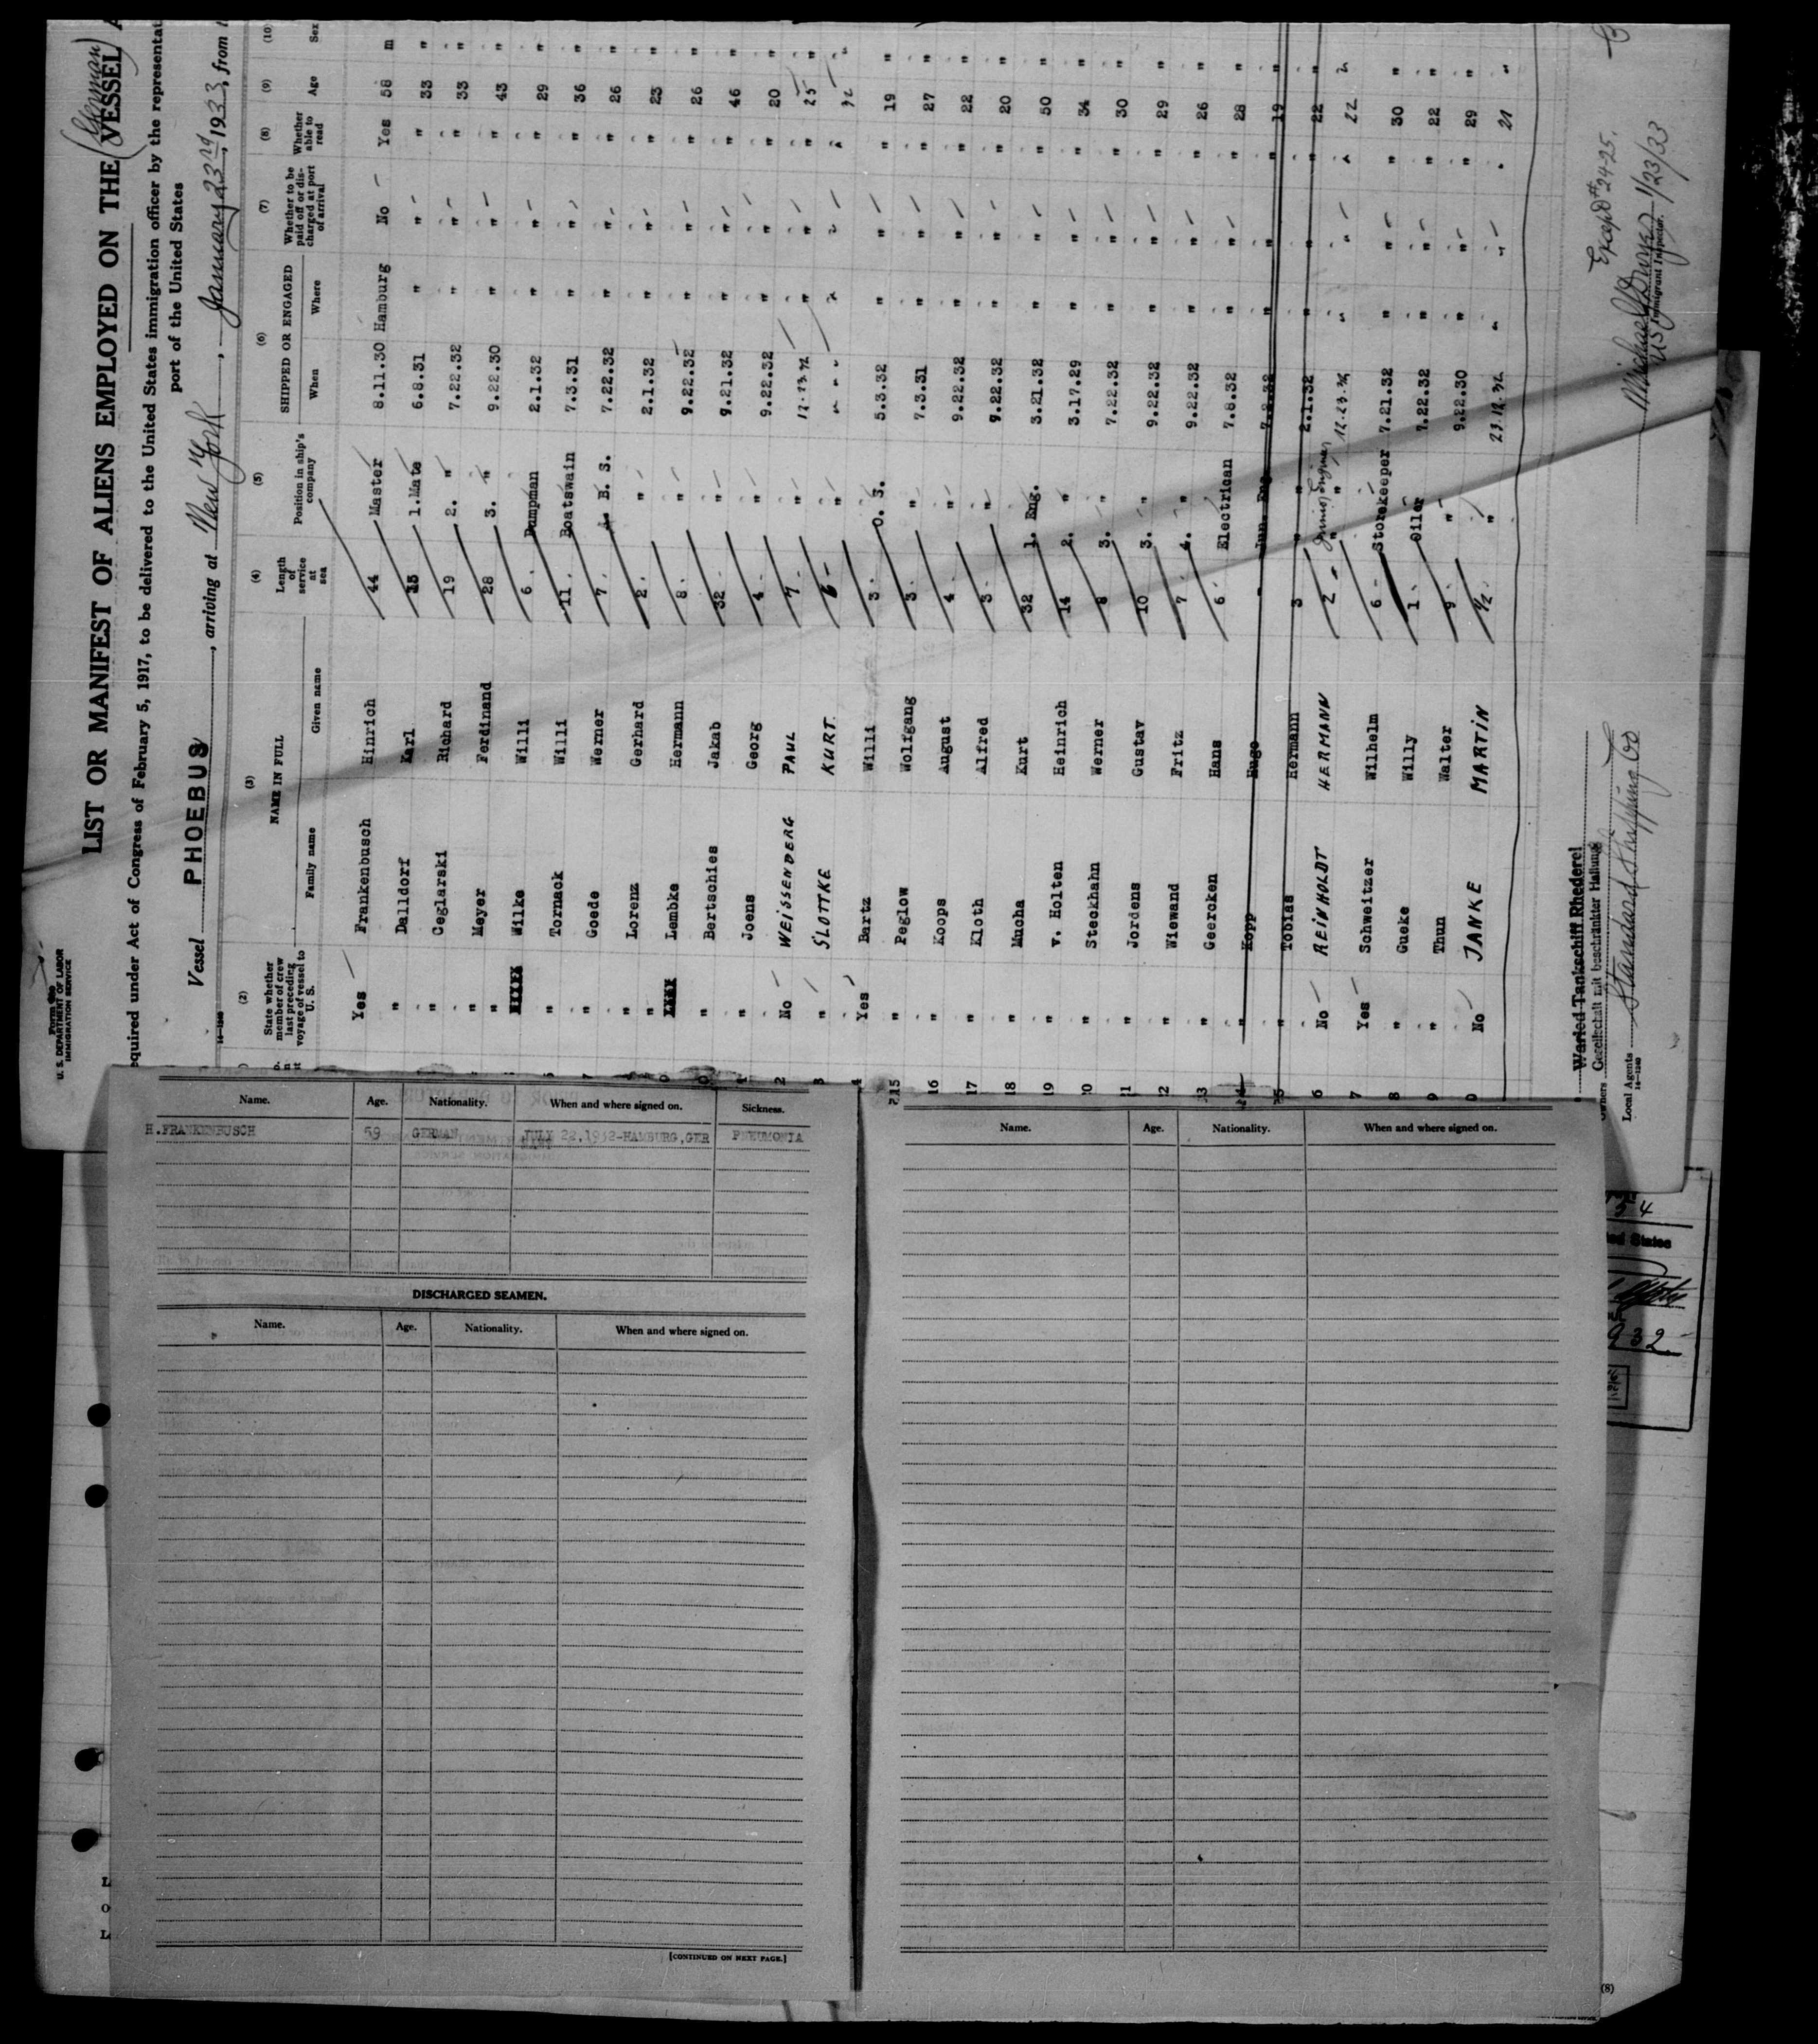 Form 680
U. S. DEPARTMENT OF LABOR
IMMIGRATION SERVICE
(German)
LIST OR MANIFEST OF ALIENS EMPLOYED ON THE VESSEL A
equired under Act of Congress of February 5, 1917, to be delivered to the United States immigration officer by the representat
port of the United States
Vessel PHOEBUS, arriving at New York, January 23rd, 1933, from
14—1240
(2) (3) (4) (5) (6) (7) (8) (9) (10)
State whether member of crew last preceding voyage of vessel to U. S. NAME IN FULL Length of service at sea Position in ship's company SHIPPED OR ENGAGED Whether to be paid off or discharged at port of arrival Whether able to read Age Sex
Family name Given name When Where
Yes Frankenbusch Hinrich 44 Master 8.11.30 Hamburg No Yes 58 m
" Dalldorf Karl 15 1.Mate 6.8.31 " " " 33 "
" Ceglarski Richard 19 2. " 7.22.32 " " " 33 "
" Meyer Ferdinand 28 3. " 9.22.30 " " " 43 "
" Wilke Willi 6 Pumpman 2.1.32 " " " 29 "
" Tornack Willi 11 Boatswain 7.3.31 " " " 36 "
" Goede Werner 7 A. B. S. 7.22.32 " " " 26 "
" Lorenz Gerhard 2 " 2.1.32 " " " 23 "
" Lembke Hermann 8 " 9.22.32 " " " 26 "
" Bertschies Jakab 32 " 9.21.32 " " " 46 "
" Joens Georg 4 " 9.22.32 " " " 20 "
2 No WEISSENBERG PAUL 7 " 12.23.32 " " " 25 "
3 " SLOTTKE KURT 6 " " " " " 32 "
4 Yes Bartz Willi 3 O. S. 5.3.32 " " " 19 "
15 " Peglow Wolfgang 3 " 7.3.31 " " " 27 "
16 " Koops August 4 " 9.22.32 " " " 22 "
17 " Kloth Alfred 3 " 9.22.32 " " " 20 "
18 " Mucha Kurt 32 1. Eng. 3.21.32 " " " 50 "
19 " v. Holten Heinrich 14 2. " 3.17.29 " " " 34 "
20 " Steckhahn Werner 8 3. " 7.22.32 " " " 30 "
21 " Jordens Gustav 10 3. " 9.22.32 " " " 29 "
22 " Wiewand Fritz 7 4. " 9.22.32 " " " 26 "
23 " Geercken Hans 6 Electrican 7.8.32 " " " 28 "
24 " Kopp Hugo Jun. Eng. 7.8.32 " " " 19 "
25 " Tobias Hermann 3 " 2.1.32 " " " 22 "
6 No REINHOLDT HERMANN 2 " Junior Engineer 12.23.32 " " " 22 "
7 Yes Schweitzer Wilhelm 6 Storekeeper 7.21.32 " " " 30 "
8 " Gueke Willy 1 Oiler 7.22.32 " " " 22 "
9 " Thun Walter 9 " 9.22.30 " " " 29 "
0 No JANKE MARTIN 1/2 " 23.12.32 " " " 21 "
Except # 24-25.
1/23/33
US Immigrant Inspector.
Owners Waried Tankschiff Rhederei
Gesellschaft mit beschränkter Haftung
Local Agents Standard Shipping Co
14—1240
Name. Age. Nationality. When and where signed on. Sickness.
H.FRANKENBUSCH 59 GERMAN JULY 22,1932-HAMBURG,GER PNEUMONIA
DISCHARGED SEAMEN.
Name. Age. Nationality. When and where signed on.
[CONTINUED ON NEXT PAGE.]
Name. Age. Nationality. When and where signed on.
54
ed States
932
(8)